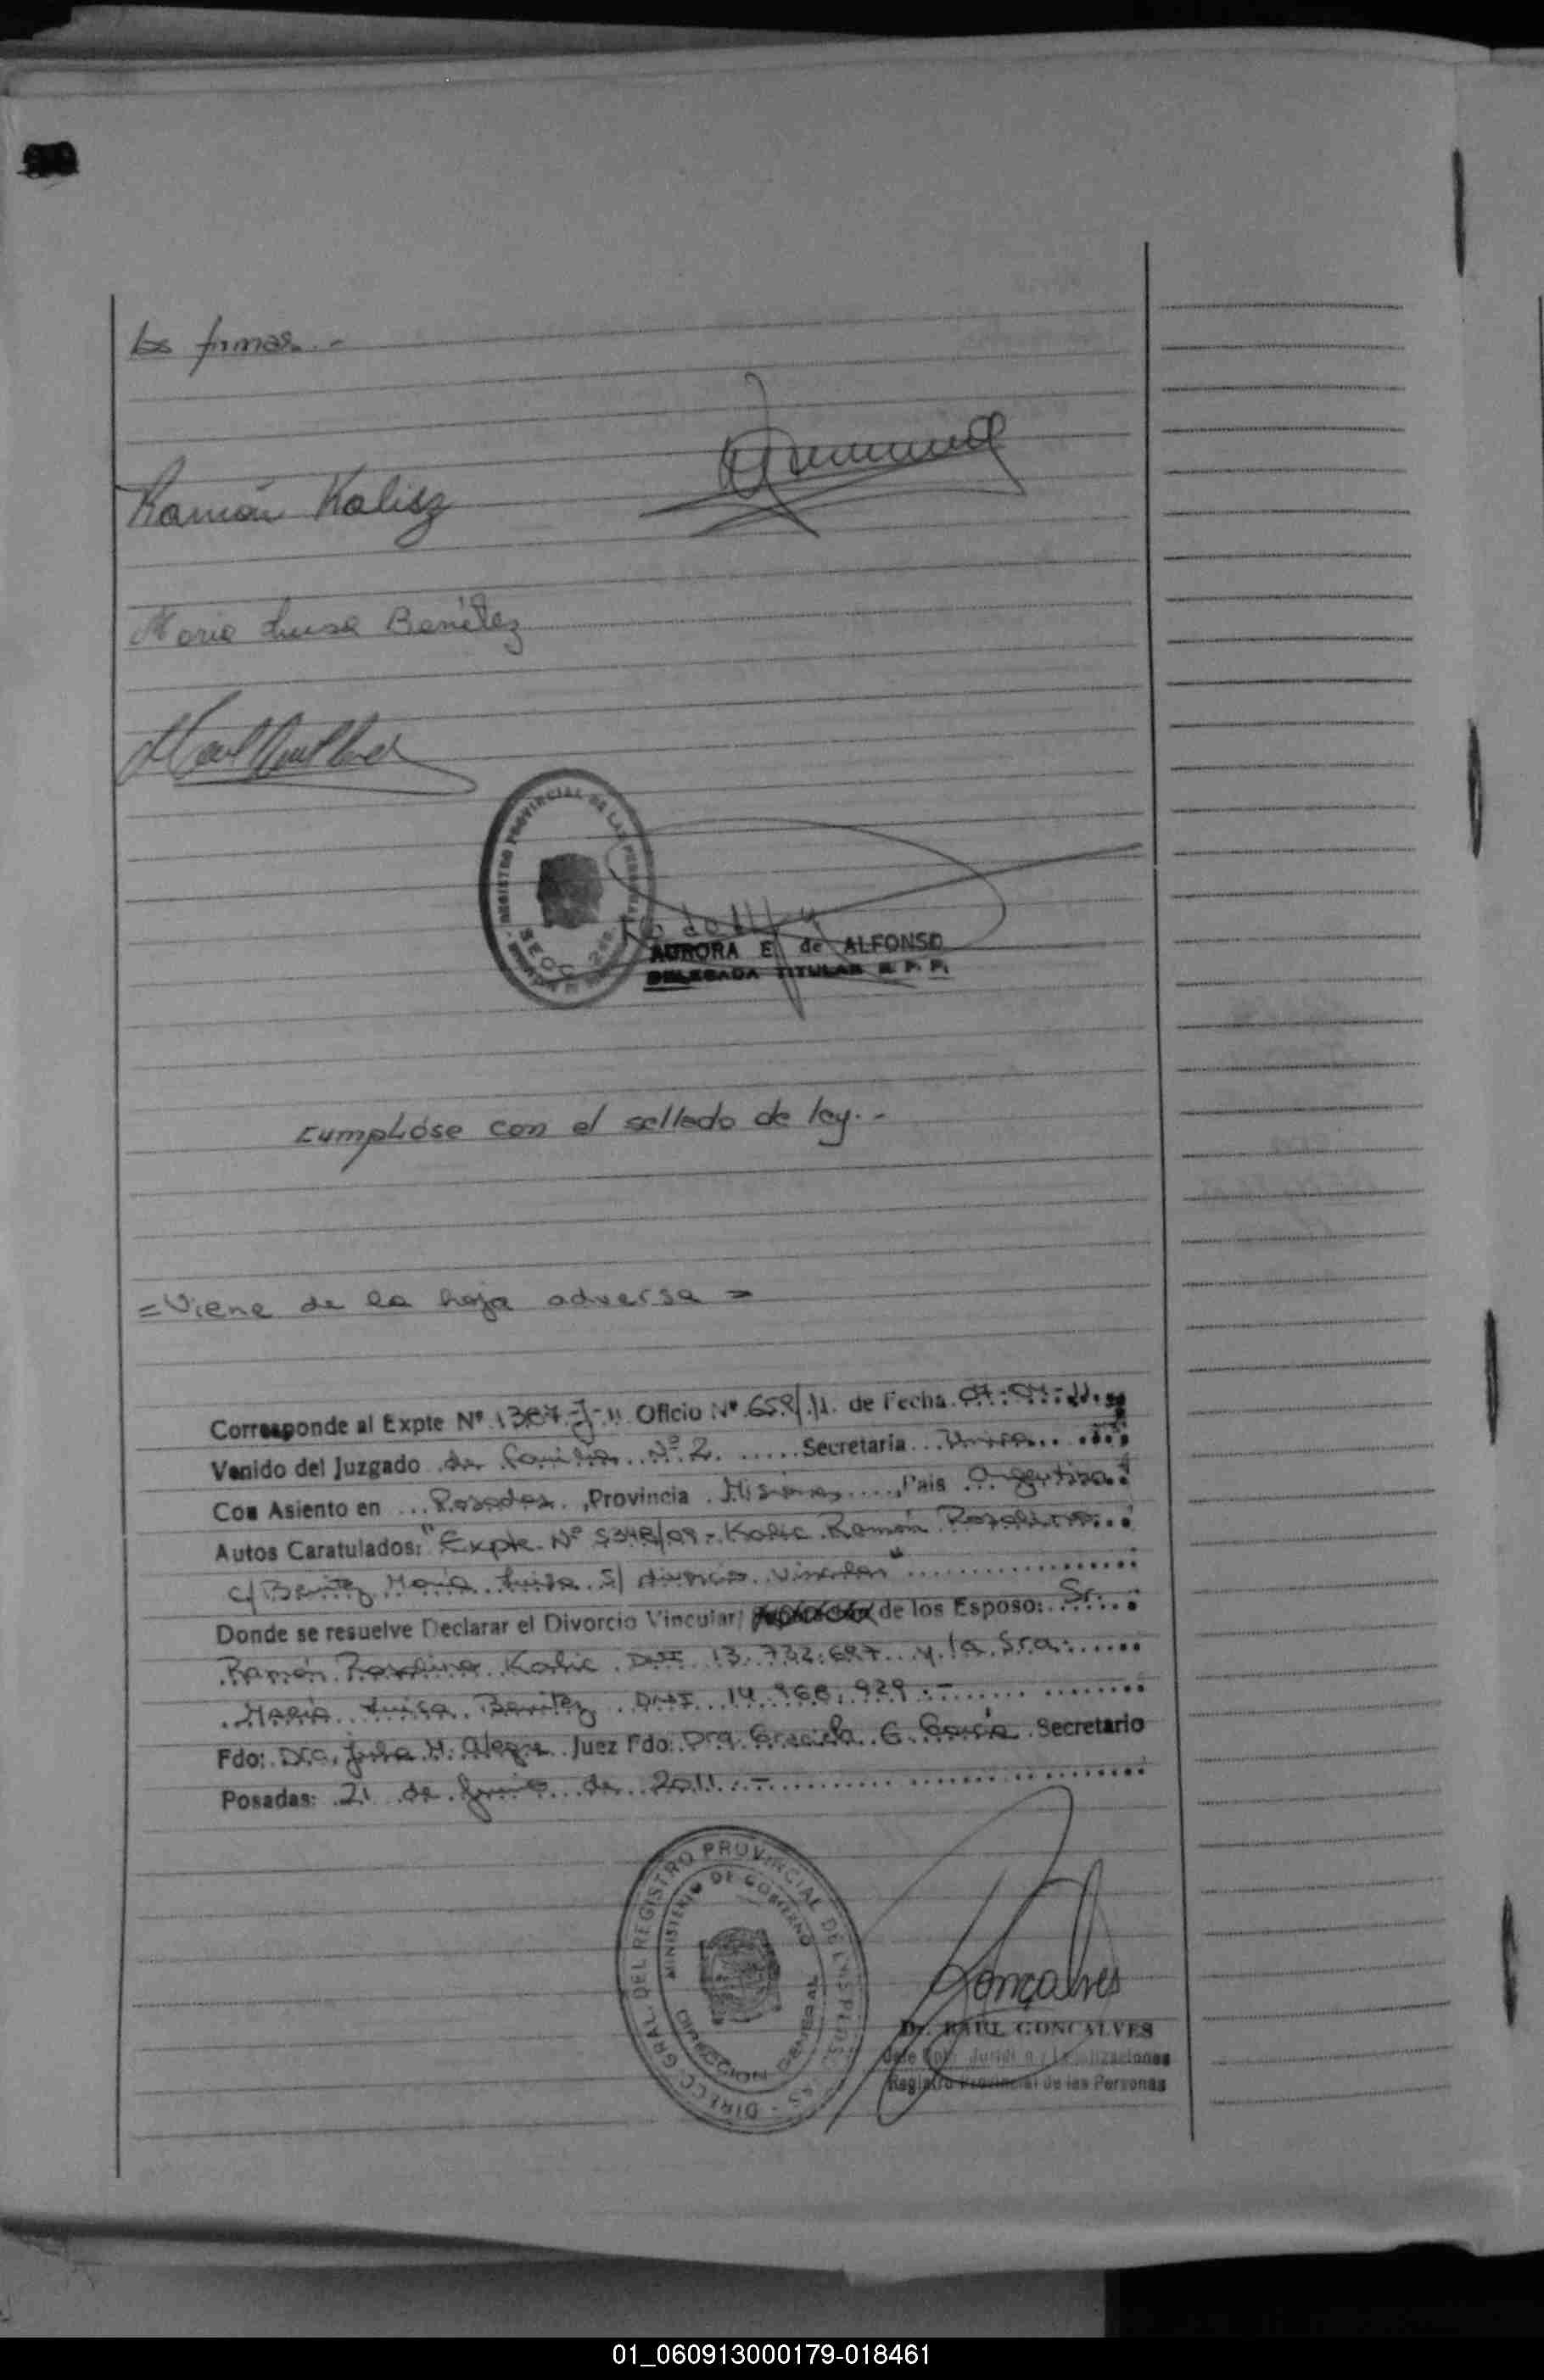 los firmas.-
Ramón Kalisz
Maria Luisa Benítez
REGISTRO PROVINCIAL DE LAS PERSONAS
SECC
AURORA E. de ALFONSO
DELEGADA TITULAR R. P. P.
Cumplióse con el sellado de ley.-
=Viene de la hoja adversa=
Corresponde al Expte Nº 1387-J-11 Oficio Nº 658/11 de Fecha 07-04-11
Venido del Juzgado de Familia Nº 2 Secretaria Unica
Con Asiento en Posadas, Provincia Misiones, Pais Argentina
Autos Caratulados: "Expte. Nº 5348/09- Ramón
c/ Benitez Maria Luisa S/ divorcio vincular"
Donde se resuelve Declarar el Divorcio Vincular/ de los Esposo: Sr.
Ramón DNI 13.732.687 y la Sra.
Maria Luisa Benitez DNI 14.968.929.-
Fdo: Dra. Julia H. Alegre Juez Fdo: Dra Graciela G Garcia Secretario
Posadas: 21 de Junio de 2011.-
DIRECC. GRAL. DEL REGISTRO PROVINCIAL DE LAS PERSONAS
MINISTERIO DE GOBIERNO
DIRECCION GENERAL
Gonçalves
Dr. RAUL GONCALVES
Jefe Dpto. Juridico y Legalizaciones
Registro Provincial de las Personas
01_060913000179-018461